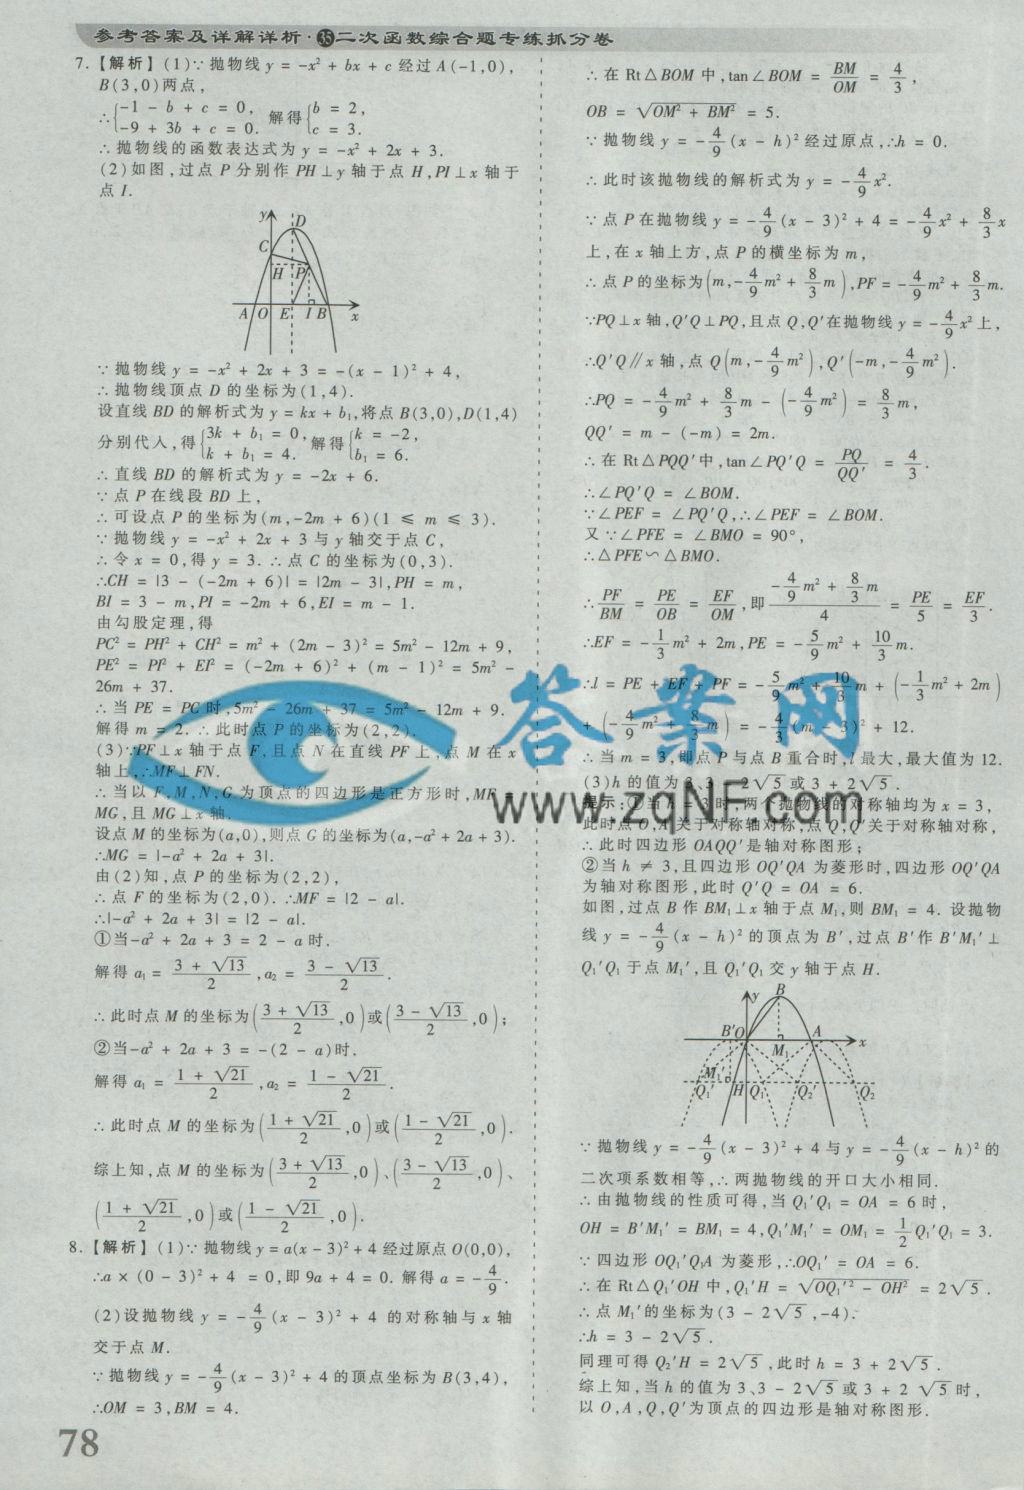 参考答案及详解详析·35二次函数综合题专练抓分卷
7.【解析】(1)∵抛物线y = -x² + bx + c 经过A(-1,0),
B(3,0)两点,
∴{-1 - b + c = 0, -9 + 3b + c = 0. 解得{b = 2, c = 3.
∴抛物线的函数表达式为y = -x² + 2x + 3.
(2)如图,过点 P 分别作 PH⊥y 轴于点 H,PI⊥x 轴于
点 I.
y D C H P A O E I B x
∵抛物线 y = -x² + 2x + 3 = -(x - 1)² + 4,
∴抛物线顶点 D 的坐标为(1,4).
设直线 BD 的解析式为y = kx + b₁,将点B(3,0),D(1,4)
分别代入,得{3k + b₁ = 0, k + b₁ = 4. 解得{k = -2, b₁ = 6.
∴直线 BD 的解析式为 y = -2x + 6.
∵点 P 在线段 BD 上,
∴可设点 P 的坐标为(m,-2m + 6)(1 ≤ m ≤ 3).
∵抛物线 y = -x² + 2x + 3 与 y 轴交于点 C,
∴令 x = 0,得 y = 3. ∴点 C 的坐标为(0,3).
∴CH = |3 - (-2m + 6)| = |2m - 3|,PH = m,
BI = 3 - m,PI = -2m + 6,EI = m - 1.
由勾股定理,得
PC² = PH² + CH² = m² + (2m - 3)² = 5m² - 12m + 9,
PE² = PI² + EI² = (-2m + 6)² + (m - 1)² = 5m² -
26m + 37.
∴当 PE = PC 时,5m² - 26m + 37 = 5m² - 12m + 9.
解得 m = 2. ∴此时点 P 的坐标为(2,2).
(3)∵PF⊥x 轴于点 F,且点 N 在直线 PF 上,点 M 在 x
轴上,∴MF⊥FN.
∴当以 F,M,N,G 为顶点的四边形是正方形时,MF =
MG,且 MG⊥x 轴.
设点 M 的坐标为(a,0),则点 G 的坐标为(a,-a² + 2a + 3).
∴MG = |-a² + 2a + 3|.
由(2)知,点 P 的坐标为(2,2),
∴点 F 的坐标为(2,0). ∴MF = |2 - a|.
∴|-a² + 2a + 3| = |2 - a|.
①当-a² + 2a + 3 = 2 - a 时.
解得 a₁ = (3 + √13)/2, a₂ = (3 - √13)/2.
∴此时点 M 的坐标为((3 + √13)/2,0)或((3 - √13)/2,0);
②当-a² + 2a + 3 = -(2 - a)时.
解得 a₁ = (1 + √21)/2, a₂ = (1 - √21)/2.
∴此时点 M 的坐标为((1 + √21)/2,0)或((1 - √21)/2,0).
综上知,点 M 的坐标为((3 + √13)/2,0)、((3 - √13)/2,0)、
((1 + √21)/2,0)或((1 - √21)/2,0).
8.【解析】(1)∵抛物线y = a(x - 3)² + 4 经过原点 O(0,0),
∴a × (0 - 3)² + 4 = 0,即 9a + 4 = 0. 解得 a = -4/9.
(2)设抛物线 y = -4/9(x - 3)² + 4 的对称轴与 x 轴
交于点 M.
∵抛物线 y = -4/9(x - 3)² + 4 的顶点坐标为 B(3,4),
∴OM = 3,BM = 4.
78
∴在 Rt△BOM 中,tan∠BOM = BM/OM = 4/3,
OB = √(OM² + BM²) = 5.
∵抛物线 y = -4/9(x - h)² 经过原点,∴h = 0.
∴此时该抛物线的解析式为 y = -4/9x².
∵点 P 在抛物线 y = -4/9(x - 3)² + 4 = -4/9x² + 8/3x
上,在 x 轴上方,点 P 的横坐标为 m,
∴点 P 的坐标为(m,-4/9m² + 8/3m),PF = -4/9m² + 8/3m.
∵PQ⊥x 轴,Q′Q⊥PQ,且点 Q,Q′在抛物线 y = -4/9x² 上,
∴Q′Q∥x 轴,点 Q(m,-4/9m²),Q′(-m,-4/9m²).
∴PQ = -4/9m² + 8/3m - (-4/9m²) = 8/3m,
QQ′ = m - (-m) = 2m.
∴在 Rt△PQQ′中,tan∠PQ′Q = PQ/QQ′ = 4/3.
∴∠PQ′Q = ∠BOM.
∵∠PEF = ∠PQ′Q,∴∠PEF = ∠BOM.
又∵∠PFE = ∠BMO = 90°,
∴△PFE∽△BMO.
∴PF/BM = PE/OB = EF/OM,即(-4/9m² + 8/3m)/4 = PE/5 = EF/3.
∴EF = -1/3m² + 2m,PE = -5/9m² + 10/3m.
∴l = PE + EF + PF = -5/9m² + 10/3m + (-1/3m² + 2m)
+ (-4/9m² + 8/3m) = -4/3(m - 3)² + 12.
∴当 m = 3,即点 P 与点 B 重合时,l 最大,最大值为 12.
(3)h 的值为 3,3 - 2√5 或 3 + 2√5.
提示:①当 h = 3 时,两个抛物线的对称轴均为 x = 3,
此时点 O,A 关于对称轴对称,点 Q,Q′关于对称轴对称,
∴此时四边形 OAQQ′是轴对称图形;
②当 h ≠ 3,且四边形 OQ′QA 为菱形时,四边形 OQ′QA
为轴对称图形,此时 Q′Q = OA = 6.
如图,过点 B 作 BM₁⊥x 轴于点 M₁,则 BM₁ = 4. 设抛物
线 y = -4/9(x - h)² 的顶点为 B′,过点 B′作 B′M₁′⊥
Q₁′Q₁ 于点 M₁′,且 Q₁′Q₁ 交 y 轴于点 H.
y B B′ O A M₁ x M₁′ Q₁′ H Q₁ Q₂′ Q₂
∵抛物线 y = -4/9(x - 3)² + 4 与 y = -4/9(x - h)² 的
二次项系数相等,∴两抛物线的开口大小相同.
∴由抛物线的性质可得,当 Q₁′Q₁ = OA = 6 时,
OH = B′M₁′ = BM₁ = 4,Q₁′M₁′ = OM₁ = 1/2Q₁′Q₁ = 3.
∵四边形 OQ₁′Q₁A 为菱形,∴OQ₁′ = OA = 6.
∴在 Rt△Q₁′OH 中,Q₁′H = √(OQ₁′² - OH²) = 2√5.
∴点 M₁′的坐标为(3 - 2√5,-4).
∴h = 3 - 2√5.
同理可得 Q₂′H = 2√5,此时 h = 3 + 2√5.
综上知,当 h 的值为 3、3 - 2√5 或 3 + 2√5 时,
以 O,A,Q,Q′为顶点的四边形是轴对称图形.
答案网
www.zqNF.com